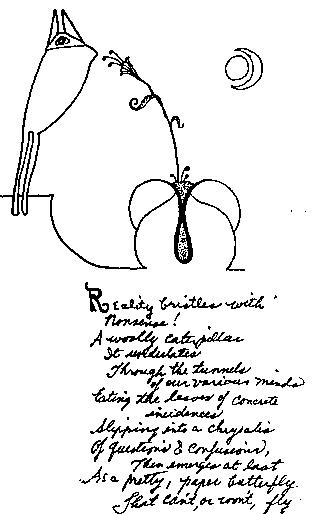 Reality bristles with
Nonsense!
A woolly caterpillar
It undulates
Through the tunnels
of our various minds
Eating the leaves of concrete
incidences
Slipping into a chrysalis
Of Questions & Confusions,
Then emerges at last
As a pretty, paper butterfly
That can't, or won't, fly